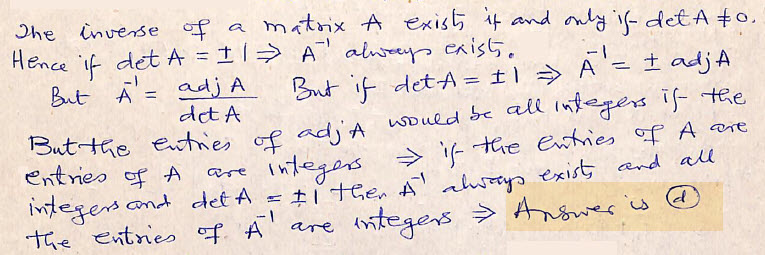 The inverse of a matrix A exists if and only if det A ≠ 0.
Hence if det A = ± 1 ⇒ A⁻¹ always exists.
But A⁻¹ = adj A / det A But if det A = ± 1 ⇒ A⁻¹ = ± adj A
But the entries of adj A would be all integers if the
entries of A are integers ⇒ if the entries of A are
integers and det A = ± 1 then A⁻¹ always exists and all
the entries of A⁻¹ are integers ⇒ Answer is (d)